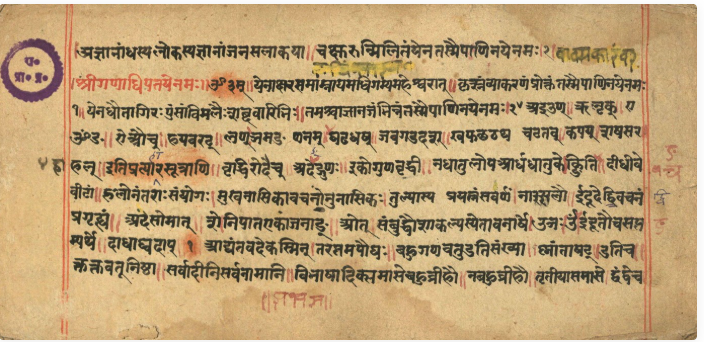 अज्ञानांधस्य लोकस्य ज्ञानांजनसलाकया॥ चक्षुरुन्मिलितं येन तस्मै पाणिनये नमः
श्रीगणाधिपतये नमः॥ येनाक्षरसमाम्नायमधिगम्य महेश्वरात्॥ कृत्स्नं व्याकरणं प्रोक्तं तस्मै पाणिनये नमः
१ येन धौता गिरः पुंसां विमलैः शब्दवारिभिः॥ तमश्चाज्ञानजं भिन्नं तस्मै पाणिनये नमः॥ २ अइउण् ऋऌक् ए
ओङ् ऐऔच् हयवरट् लण् ञमङणनम् झभञ् घढधष् जबगडदश् खफछठथ चटतव् कपय् शषसर्
हल् इति प्रत्याहारसूत्राणि वृद्धिरादैच् अदेङ्गुणः इको गुणवृद्धी नधातुलोप आर्धधातुके क्ङिति दीधीवे
वीटां॥ हलोनंतराः संयोगः मुखनासिकावचनोनुनासिकः तुल्यास्य प्रयत्नं सवर्णं नाज्झलौ ईदूदेद्द्विवचनं
प्रगृह्यं॥ अदसोमात् शे निपात एकाजनाङ् ओत् संबुद्धौ शाकल्यस्येतावनार्षे उञः ऊँ ईदूतौ च सप्त
म्यर्थे दाधाघ्वदाप् १ आद्यंतवदेकस्मिन् तरप्तमपौघः बहुगणवतुडति संख्या ष्णांताषट् डति च
क्तक्तवतूनिष्ठा॥ सर्वादीनि सर्वनामानि विभाषादिक्समासे बहुव्रीहौ नबहुव्रीहौ तृतीयासमासे द्वंद्वे च